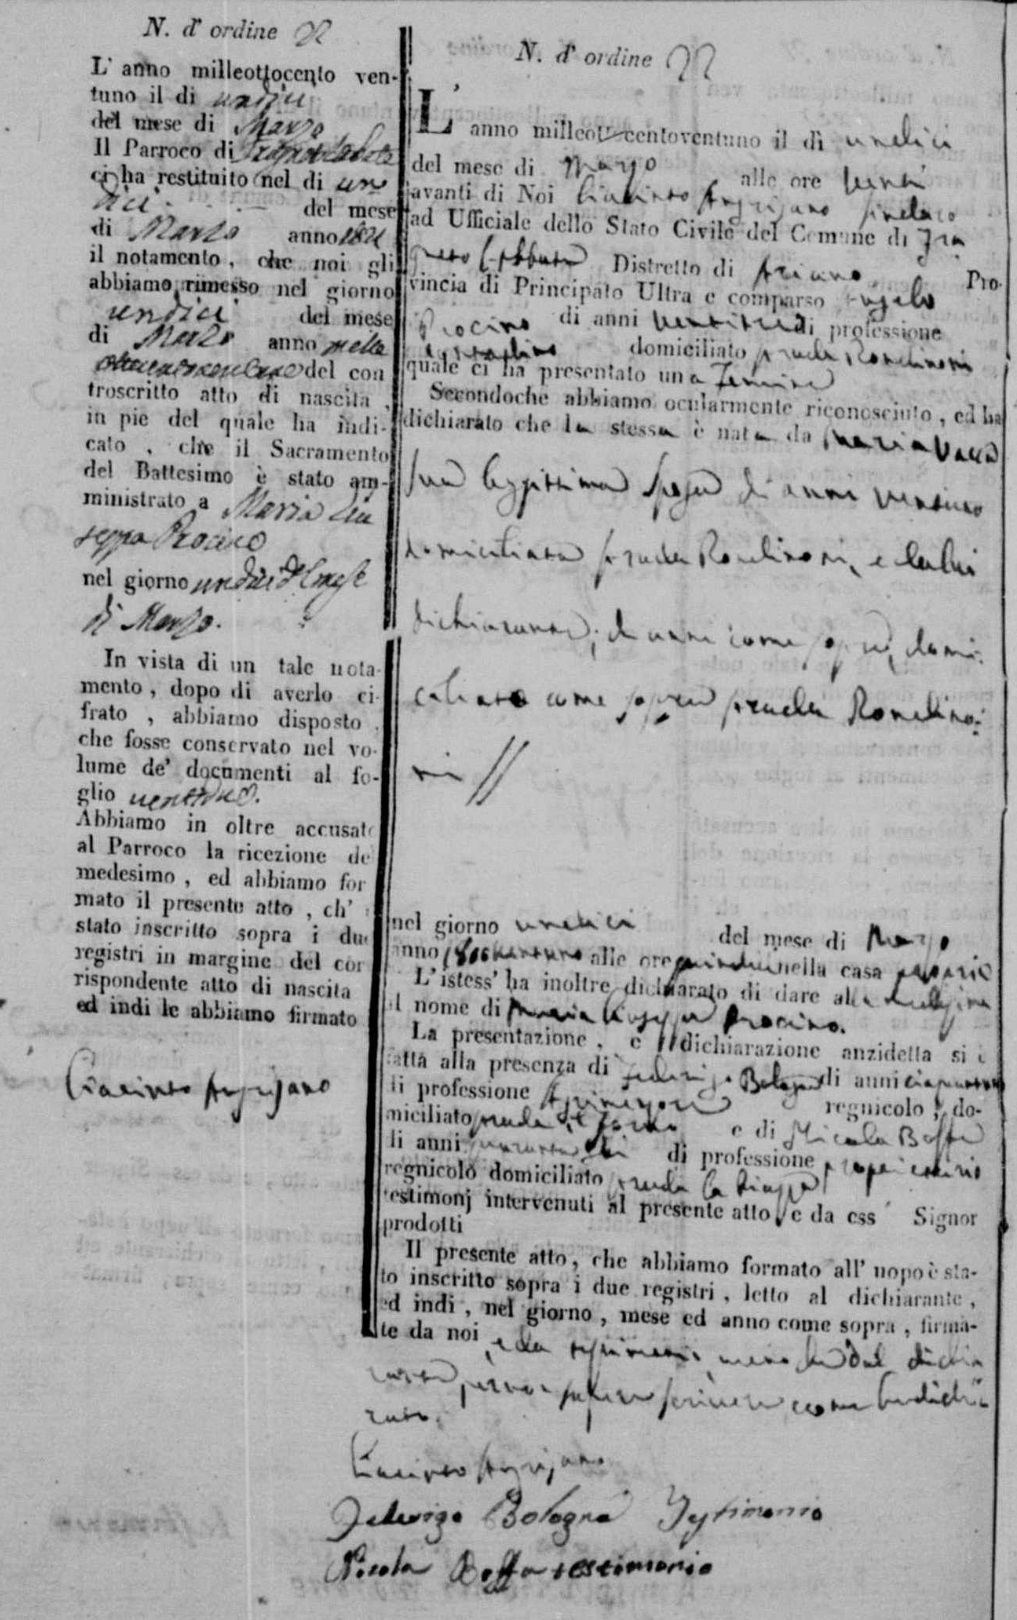 N. d' ordine 22
L' anno milleottocento ven-
tuno il dì undici
del mese di Marzo
Il Parroco di
ci ha restituito nel dì un
dici del mese
di Marzo anno 1821
il notamento, che noi gli
abbiamo rimesso nel giorno
undici del mese
di Marzo anno mille
ottocentoventuno del con
troscritto atto di nascita,
in piè del quale ha indi-
cato, che il Sacramento
del Battesimo è stato am-
ministrato a Maria Giu
seppa Procino
nel giorno undici del mese
di Marzo.
In vista di un tale nota-
mento, dopo di averlo ci-
frato, abbiamo disposto
che fosse conservato nel vo-
lume de' documenti al fo-
glio ventidue.
Abbiamo in oltre accusato
al Parroco la ricezione de
medesimo, ed abbiamo for
mato il presente atto, ch'
stato inscritto sopra i due
registri in margine del cor
rispondente atto di nascita
ed indi le abbiamo firmato
Giacinto
N. d' ordine 22
L' anno milleottocentoventuno il dì undici
del mese di Marzo alle ore venti
avanti di Noi Giacinto Sindaco
ad Uffiziale dello Stato Civile del Comune di
Distretto di Ariano Pro-
vincia di Principato Ultra è comparso Angelo
Procino di anni ventitre di professione
domiciliato strada
quale ci ha presentato una Femina
Secondochè abbiamo ocularmente riconosciuto, ed ha
dichiarato che la stessa è nata da Maria Vacca
sua legittima sposa di anni
domiciliata strada e da lui
dichiarante, di anni come sopra, domi-
ciliato come sopra strada
ni //
nel giorno undici del mese di Marzo
anno alle ore nella casa propria
L' istess' ha inoltre dichiarato di dare alla medesima
il nome di Maria Giuseppa Procino.
La presentazione, e dichiarazione anzidetta si è
fatta alla presenza di Federigo Bologna di anni
di professione regnicolo, do-
miciliato strada e di Nicola Boffa
di anni di professione proprietario
regnicolo domiciliato strada la Piazza
testimonj intervenuti al presente atto, e da ess Signor
prodotti
Il presente atto, che abbiamo formato all' uopo è sta-
to inscritto sopra i due registri, letto al dichiarante,
ed indi, nel giorno, mese ed anno come sopra, firma-
te da noi, e da testimoni, meno che dal dichia
rante, per non sapere scrivere come ha dichia
rato.
Giacinto
Federigo Bologna Testimonio
Nicola Boffa testimonio